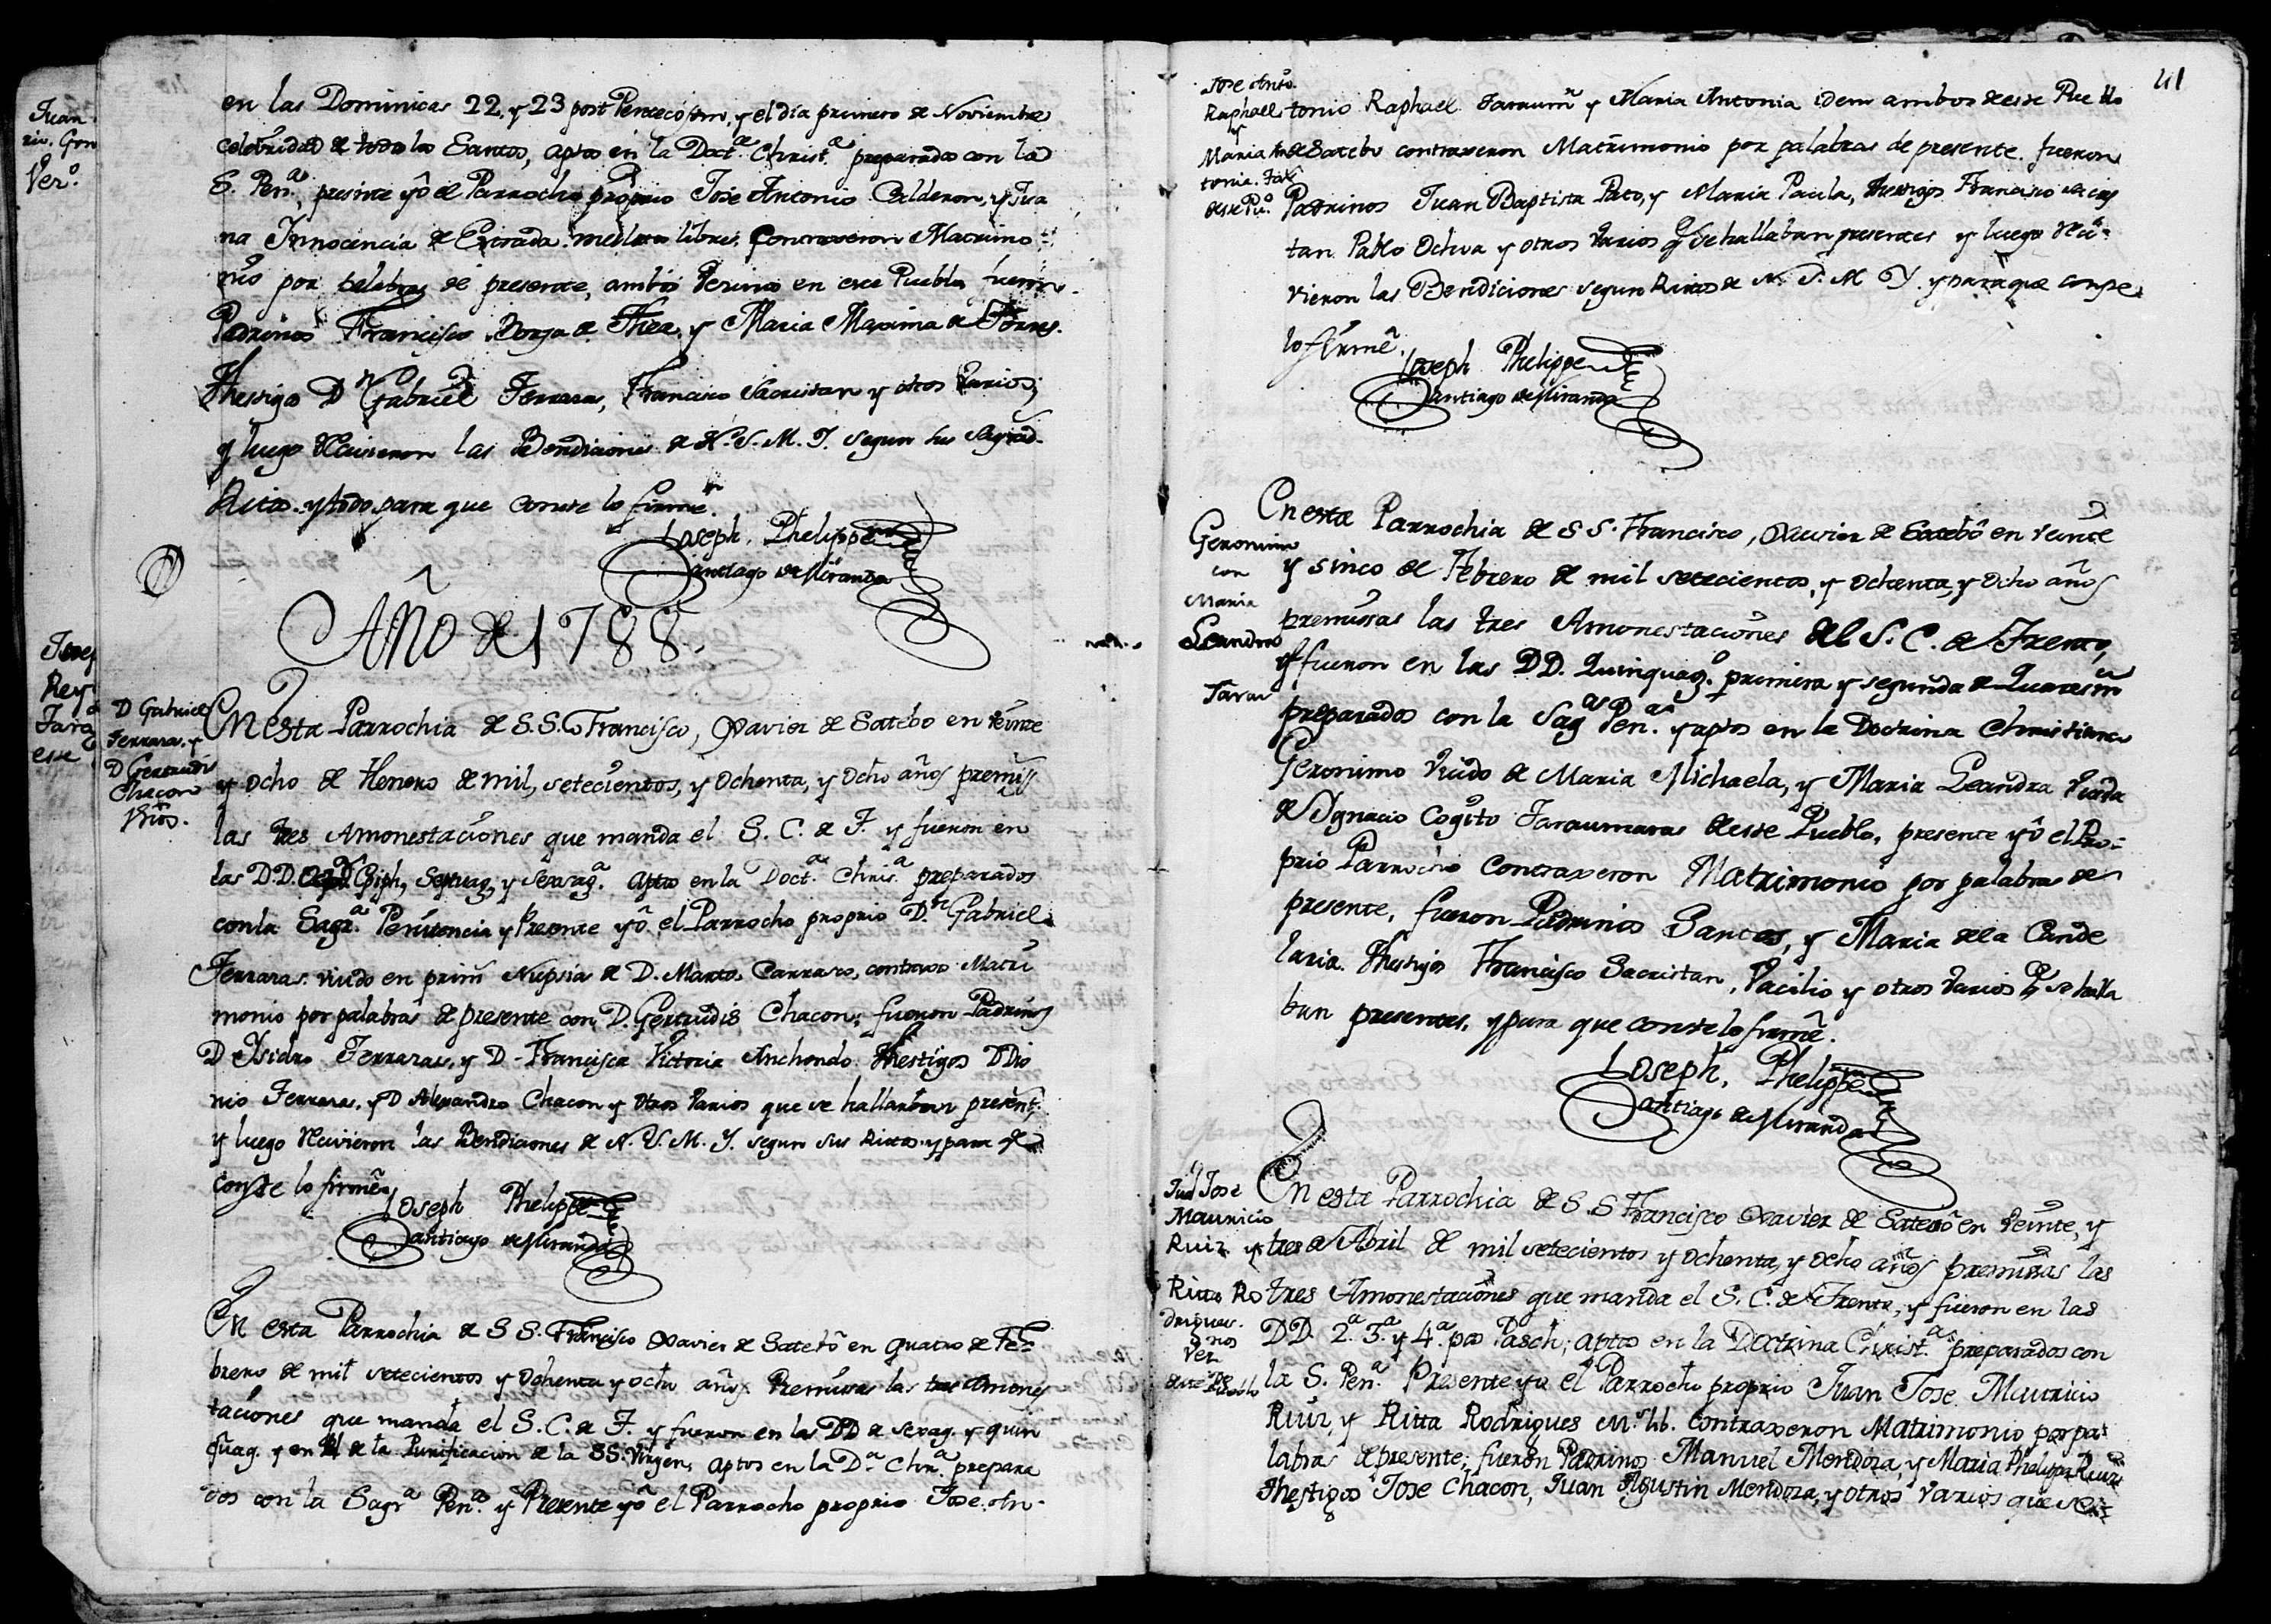 en las Dominicas 22, y 23 post Pentecostem, y el dia primero de Noviembre
celebridad de todos los Santos, aptos en la Doct.a Christ.a preparados con la
S. Pen.a, presente yô el Parrocho proprio Jose Antonio Calderon, y Jua
na Innocencia de Estrada libres. Contraxeron Matrimo
nio por palabras de presente, ambos Vecinos en este Pueblo, fueron
Padrinos Francisco Borja de y Maria Maxima de Torres.
Thestigos D.n Gabriel Ferraras, Francisco Sacristan y otros varios,
y luego recivieron las Bendiciones de N. S. M. Y. segun sus Sagrad.
Ritos. y todo para que conste lo firmê.
Joseph Phelippe
Santiago de Miranda
Año de 1788.
D Gabriel
Ferraras. y
D Gertrudis
Chacon
En esta Parrochia de S. S. Francisco, Xavier de Satebo en veinte
y ocho de Henero de mil, setecientos, y ochenta, y ocho años premis
las tres Amonestaciones que manda el S. C. de T. y fueron en
las DD. Epiph, Septuag, y Sexag.a aptos en la Doct.a Chris.a preparados
con la Sagr.a Penitencia y Presente yô el Parrocho proprio D.n Gabriel
Ferraras. viudo en prim Nupsias de D. Carrasco, contraxo Matri
monio por palabras de presente con D. Gertrudis Chacon; fueron Padrinos
D Ysidro Ferraras, y D. Francisca Victoria Anchondo Thestigos D Dio
nio Ferraras, y D Alexandro Chacon y otros varios que se hallaban present.
y luego recivieron las Bendiciones de N. S. M. Y. segun sus Ritos y para q
conste lo firmê
Joseph Phelippe
Santiago de Miranda
En esta Parrochia de S S. Francisco Xavier de Satebô en quatro de Fe-
brero de mil setecientos y ochenta y ocho años Premisas las tres Amones
taciones que manda el S. C. de T. y fueron en las DD de sexag. y quin
quag. y en el de la Purificacion de la SS. Virgen, aptos en la D.a Chr.a prepara
dos con la Sagr.a Pen.a y Presente yô el Parrocho proprio Jose An-
41
Jose Anto.
Raphael
y
Maria An
tonia. Tar
deste Pu.o
tonio Raphael Taraum.a y Maria Antonia idem ambos deste Pueblo
de Satebo contraxeron Matrimonio por palabras de presente. fueron
Padrinos Juan Baptista Pato, y Maria Paula, thestigos Francisco Sacris
tan Pablo Ochoa y otros varios q se hallaban presentes y luego reci-
vieron las Bendiciones segun Ritos de N. S. M Y y para que conste
lo firmê.
Joseph Phelippe
Santiago de Miranda
Geronimo
con
Maria
Leandra
Tarau
En esta Parrochia de S S. Francisco, Xavier de Satebô en veinte
y sinco de Febrero de mil setecientos, y ochenta, y ocho años
premissas las tres Amonestaciones del S. C. de Trento,
q fueron en las DD. Quinquag.o primera y segunda de Quaresm
preparados con la Sag.a Pen.a y aptos en la Doctrina Christiana
Geronimo viudo de Maria Michaela, y Maria Leandra Viuda
de Ygnacio Cogito Taraumaras deste Pueblo, presente yô el Pro-
prio Parrocho Contraxeron Matrimonio por palabras de
presente, fueron Padrinos Santos, y Maria dela Cande
laria. Thestigos Francisco Sacristan, Vacilio y otros varios q se halla
ban presentes, y para que conste lo firmê.
Joseph Phelippe
Santiago de Miranda
Jua Jose
Mauricio
Ruiz y
Ritta Ro
drigues.
Vez
deste Pueblo
En esta Parrochia de S. S Francisco Xavier de Satebô en veinte, y
tres de Abril de mil setecientos y ochenta, y ocho años premisas las
tres Amonestaciones que manda el S. C. de Trento, y fueron en las
DD. 2.a 3.a y 4.a pos Pasch; aptos en la Doctrina Christ.a preparados con
la S. Pen.a Presente yo el Parrocho proprio Juan Jose Mauricio
Ruiz, y Ritta Rodrigues M.s lib. Contraxeron Matrimonio por pa-
labras de presente; fueron Padrinos Manuel Mendoza, y Maria Phelippa Ruiz
thestigos Jose Chacon, Juan Agustin Mendoza, y otros varios que se